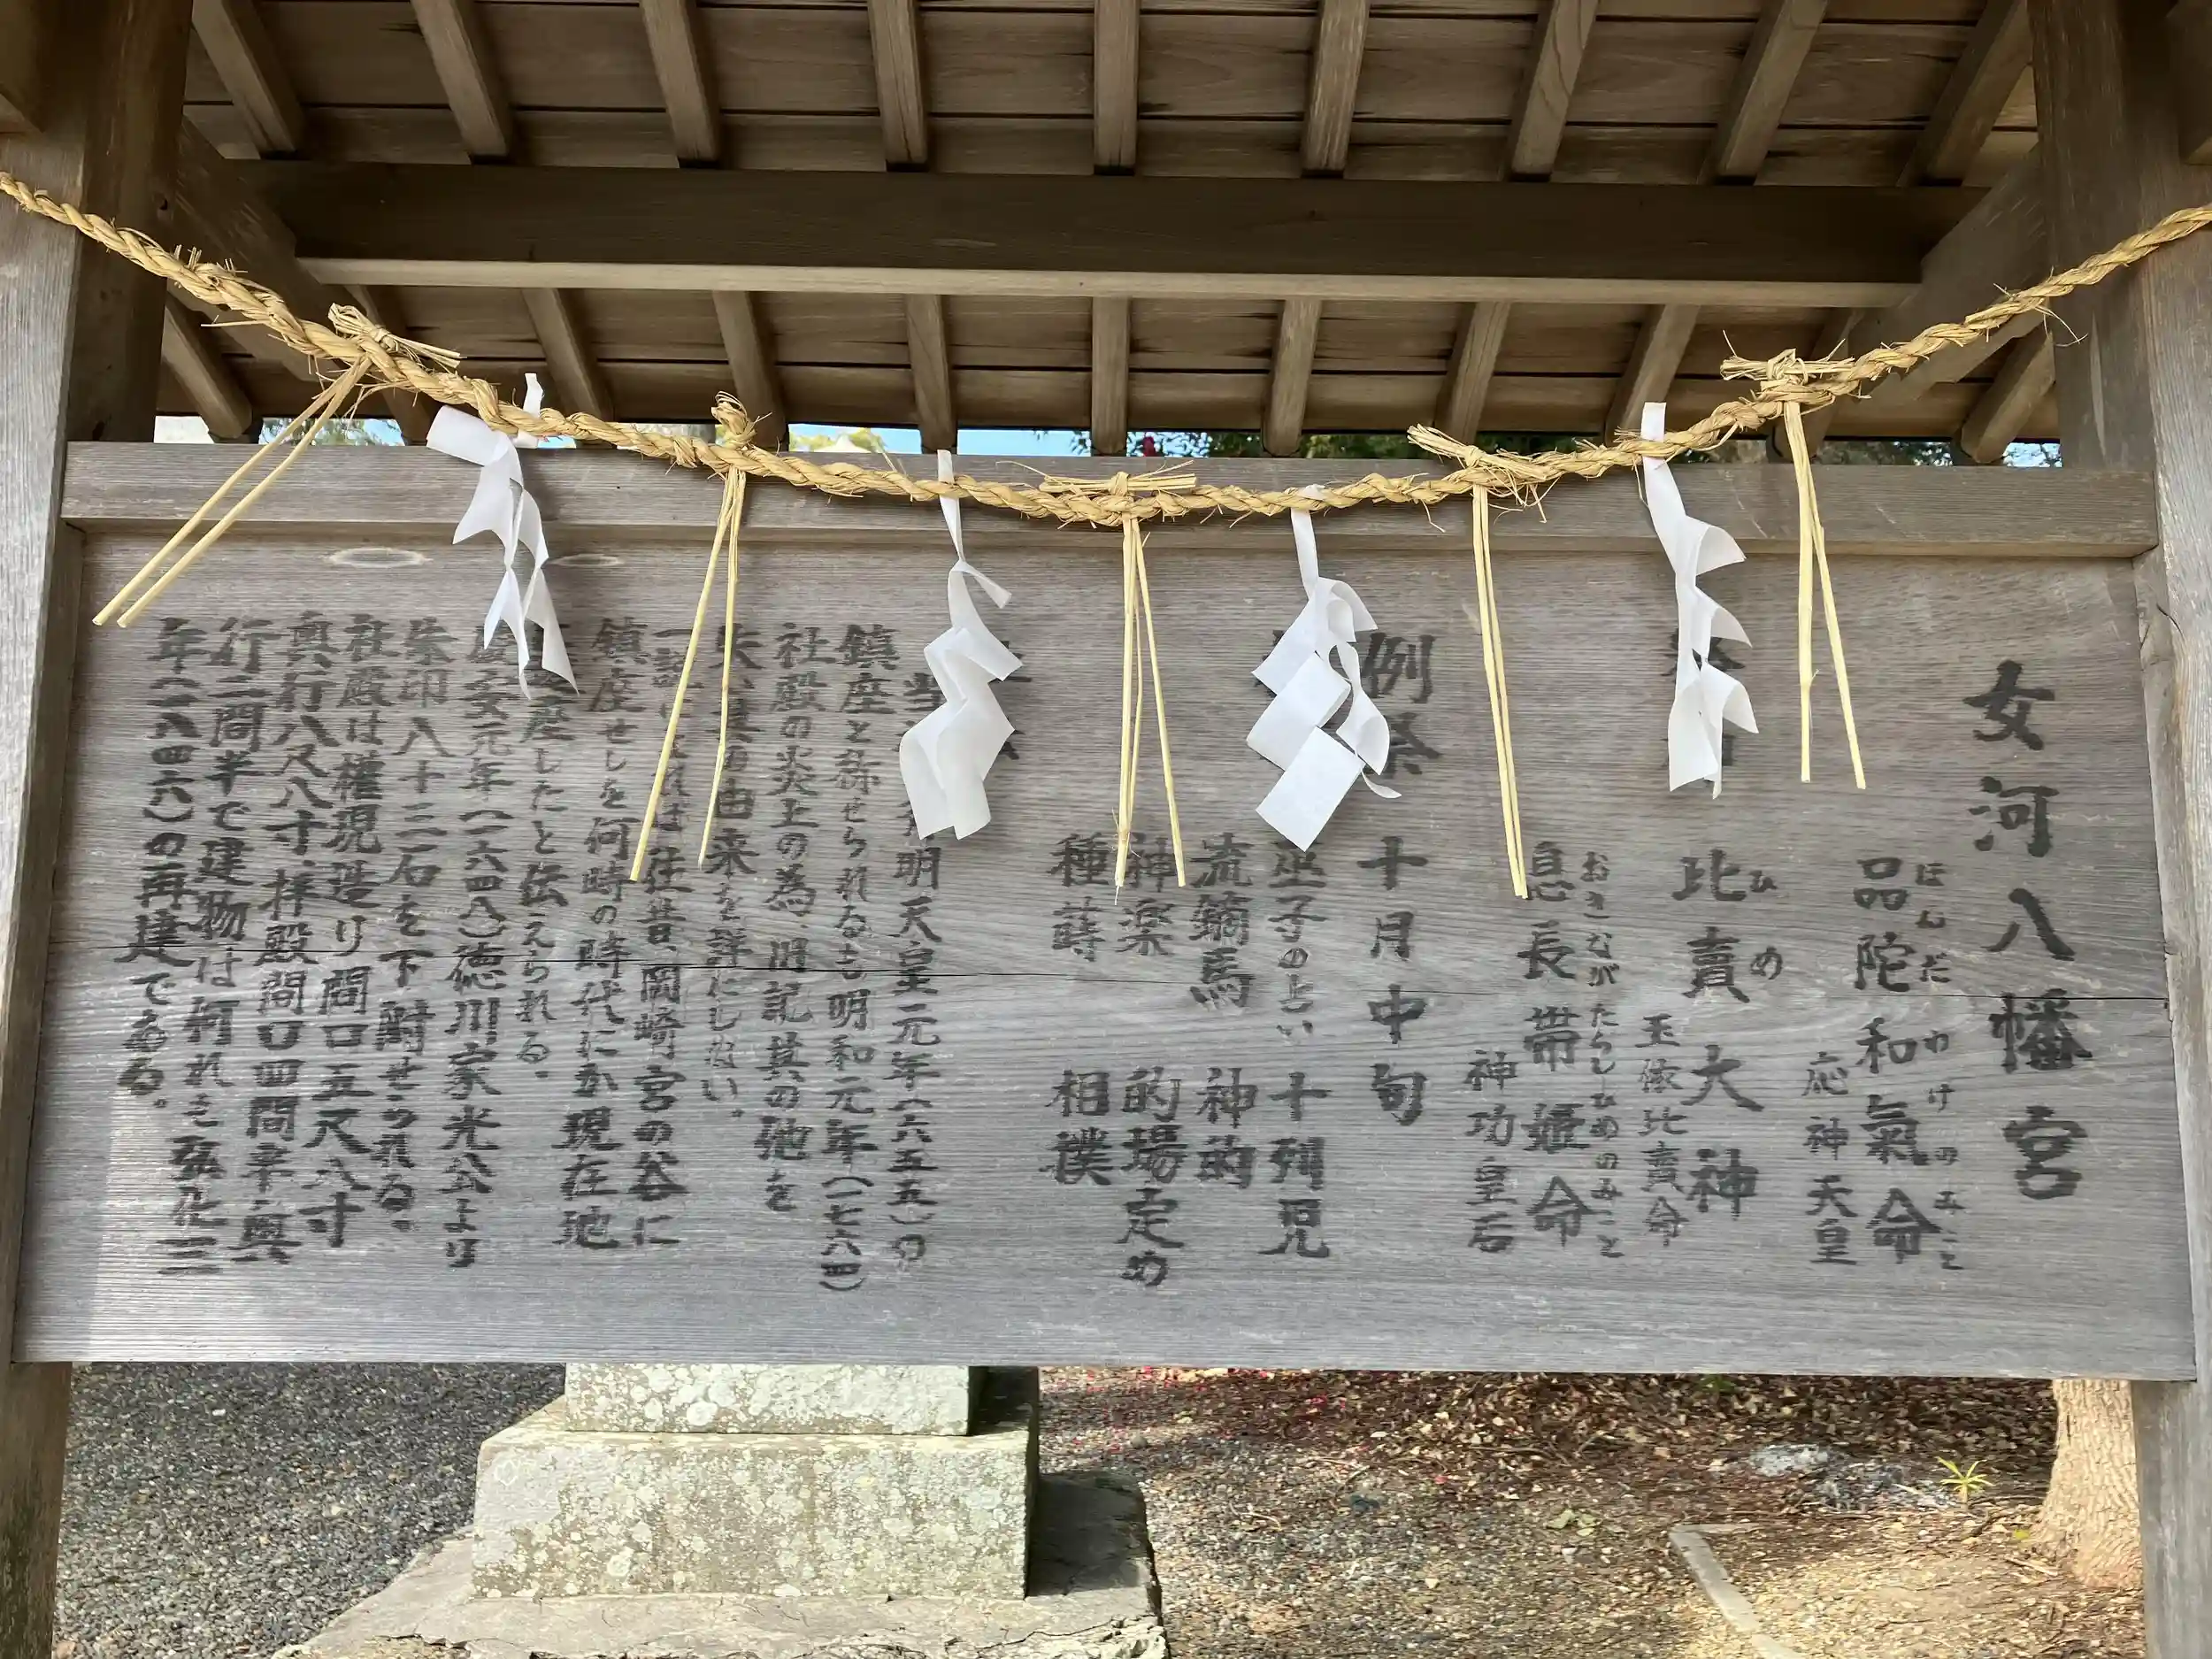 女河八幡宮
ほんだ わけのみこと
品陀和氣命
応神天皇
ひめ
比賣大神
玉依比賣命
おきながたらしひめのみこと
息長帯姫命
神功皇后
例祭 十月中旬
巫子の占い 十列児
流鏑馬 神的
神楽 的場定め
種蒔 相撲
明天皇元年(六五五)の
鎮座と称せられるも明和元年(一七六四)
社殿の炎上の為、旧記其の他を
失い 由来を詳にしない。
往昔、岡崎宮の谷に
鎮座せしを何時の時代にか現在地
座したと伝えられる。
慶安元年(一六四八)徳川家光公より
朱印八十三石を下附せられる。
社殿は権現造り間口五尺八寸
奥行八尺八寸、拝殿間口四間半、奥
行二間半で建物は何れも弘化三
年(一八四六)の再建である。